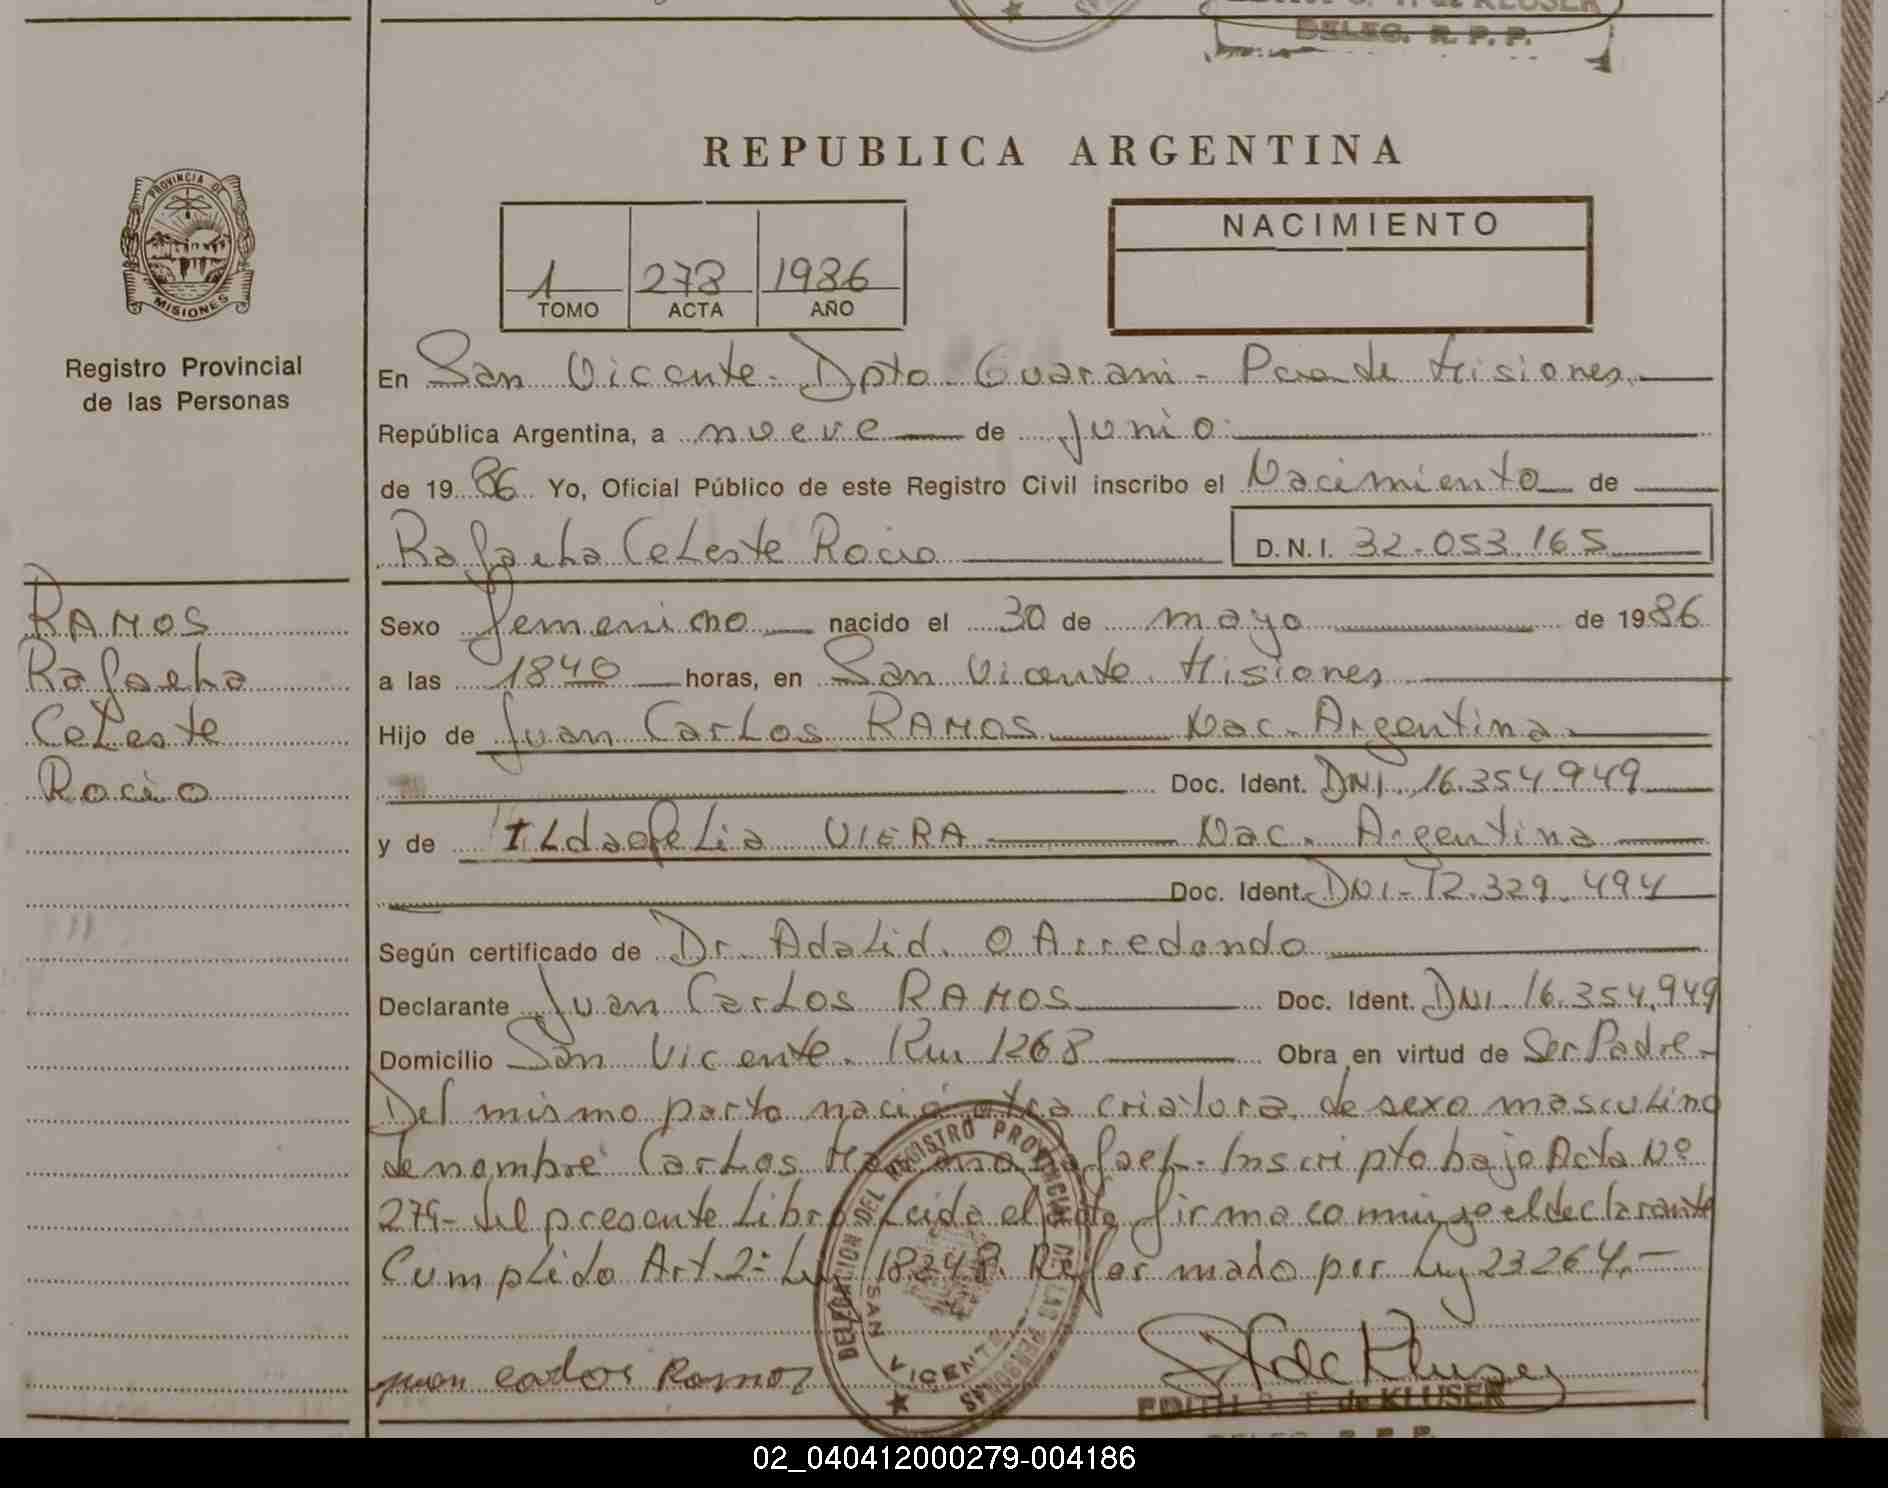 DELEG. R. P. P.
REPUBLICA ARGENTINA
PROVINCIA DE
MISIONES
Registro Provincial
de las Personas
1 278 1986
TOMO ACTA AÑO
NACIMIENTO
En San Vicente - Dpto Guarani - Pcia de Misiones
República Argentina, a nueve de Junio
de 1986 Yo, Oficial Público de este Registro Civil inscribo el Nacimiento de
Rafaela Celeste Rocio D.N.I. 32.053.165
RAMOS
Rafaela
Celeste
Rocio
Sexo femenino nacido el 30 de mayo de 1986
a las 1840 horas, en San Vicente. Misiones
Hijo de Juan Carlos RAMOS Nac. Argentina
Doc. Ident. DNI. 16.354.949
y de VIERA Nac. Argentina
Doc. Ident. DNI-12.329.494
Según certificado de Dr. Adalid. O Arredondo
Declarante Juan Carlos RAMOS Doc. Ident. DNI. 16.354.949
Domicilio San Vicente. Km 1268 Obra en virtud de Ser Padre-
Del mismo parto nació otra criatura de sexo masculino
de nombre Carlos Rafael. Inscripto bajo Acta Nº
279- del presente Libro Leida el acta, firma conmigo el declarante
Cumplido Art. 2º Ley 18248. Reformado por Ley 23264.-
Juan Carlos Ramos
DELEGACION DEL REGISTRO PROVINCIAL DE LAS PERSONAS
SAN VICENTE
EDITH T. de KLUSER
02_040412000279-004186